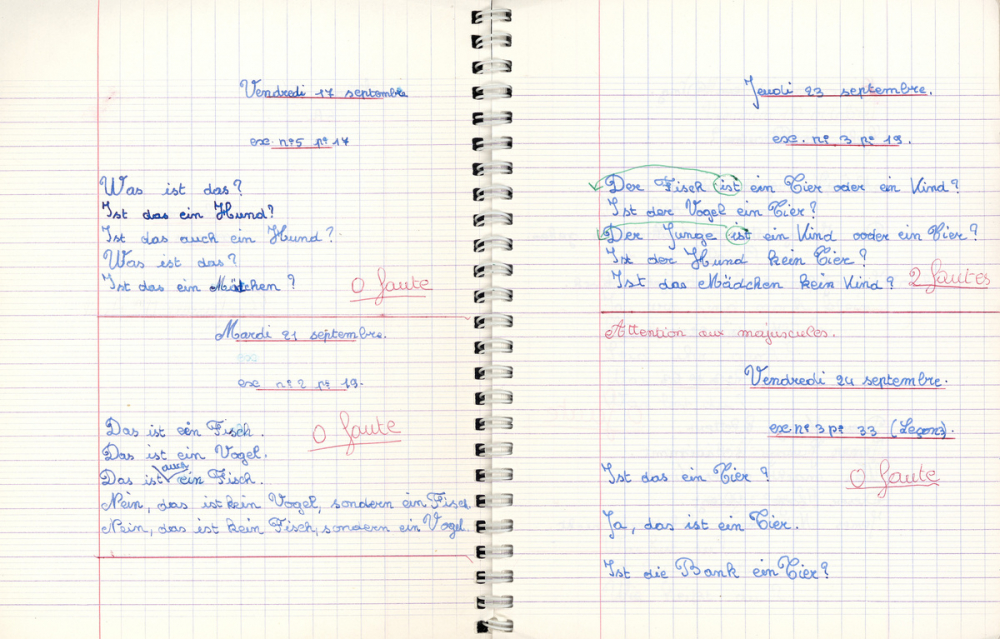 Vendredi 17 septembre
ex. n°5 p° 17
Was ist das?
Ist das ein Hund?
Ist das auch ein Hund?
Was ist das?
Ist das ein Mädchen?
0 faute
Mardi 21 septembre.
ex
ex n°2 p° 19.
Das ist ein Fisch.
0 faute
Das ist ein Vogel.
Das ist ein Fisch.
Nein, das ist kein Vogel, sondern ein Fisch.
Nein, das ist kein Fisch, sondern ein Vogel.
Jeudi 23 septembre.
ex. n° 3 p° 19.
Der Fisch ist ein Tier oder ein Kind?
Ist der Vogel ein Tier?
Der Junge ist ein Kind ooder ein Tier?
Ist der Hund kein Tier?
Ist das Mädchen kein Kind?
2 fautes
Attention aux majuscules.
Vendredi 24 septembre.
ex n° 3 p° 33 (Leçon3).
Ist das ein Tier?
0 faute
Ja, das ist ein Tier.
Ist die Bank ein Tier?